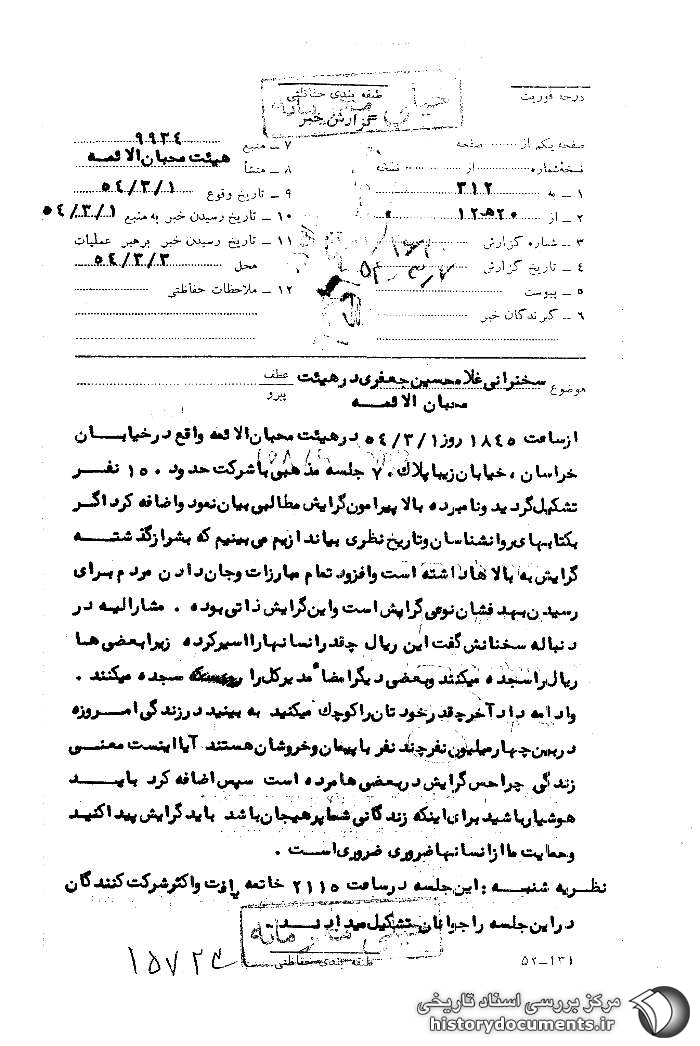 طبقه بندی حفاظتی
خیلی محرمانه
گزارش خبر
درجه فوریت
صفحه یکم از صفحه
نسخه شماره از نسخه
۱ ــ به ۳۱۲
۲ ــ از ۲۰ه۱۲
۳ ــ شماره گزارش
۴ ــ تاریخ گزارش
۵ ــ پیوست
۶ ــ گیرندگان خبر
۷ ــ منبع ۹۹۳۴
۸ ــ منشأ هیئت محبان الائمه
۹ ــ تاریخ وقوع ۵۴/۳/۱
۱۰ ــ تاریخ رسیدن خبر به منبع ۵۴/۳/۱
۱۱ ــ تاریخ رسیدن خبر برهبر عملیات
محل ۵۴/۳/۳
۱۲ ــ ملاحظات حفاظتی
موضوع سخنرانی غلامحسین جعفری در هیئت
محبان الائمه
عطف
پیرو
از ساعت ۱۸۴۵ روز ۵۴/۳/۱ در هیئت محبان الائمه واقع در خیابان
خراسان ، خیابان زیبا پلاک ۷۰ جلسه مذهبی با شرکت حدود ۱۵۰ نفر
تشکیل گردید و نامبرده بالا پیرامون گرایش مطالبی بیان نمود و اضافه کرد اگر
بکتابهای روانشناسان و تاریخ نظری بیاندازیم می بینیم که بشر از گذشته
گرایش به بالاها داشته است و افزود تمام مبارزات و جان دادن مردم برای
رسیدن بهدفشان نوعی گرایش است و این گرایش ذاتی بوده . مشارالیه در
دنباله سخنانش گفت این ریال چقدر انسانها را اسیر کرده زیرا بعضی ها
ریال را سجده میکنند و بعضی دیگر امضاء مدیر کل را سجده میکنند .
وادامه داد آخر چقدر خودتان را کوچك میکنید به بینید در زندگی امروزه
در بین چهار میلیون نفر چند نفر با پیمان و خروشان هستند آیا اینست معنی
زندگی چرا حس گرایش در بعضی ها مرده است سپس اضافه کرد باید
هوشیار باشید برای اینکه زندگانی شما پر هیجان باشد باید گرایش پیدا کنید
و حمایت ما از انسانها ضروری ضروری است .
نظریه شنبه : این جلسه در ساعت ۲۱۱۵ خاتمه یافت و اکثر شرکت کنندگان
در این جلسه را جوانان تشکیل میدادند .
خیلی محرمانه
طبقه بندی حفاظتی
۵۲-۱۳۱
مرکز بررسی اسناد تاریخی
historydocuments.ir